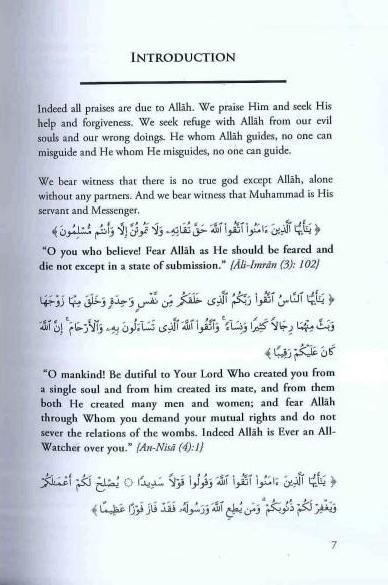 INTRODUCTION
Indeed all praises are due to Allāh. We praise Him and seek His
help and forgiveness. We seek refuge with Allāh from our evil
souls and our wrong doings. He whom Allāh guides, no one can
misguide and He whom He misguides, no one can guide.
We bear witness that there is no true god except Allāh, alone
without any partners. And we bear witness that Muhammad is His
servant and Messenger.
﴿ يَٰٓأَيُّهَا ٱلَّذِينَ ءَامَنُوا۟ ٱتَّقُوا۟ ٱللَّهَ حَقَّ تُقَاتِهِۦ وَلَا تَمُوتُنَّ إِلَّا وَأَنتُم مُّسْلِمُونَ ﴾
“O you who believe! Fear Allāh as He should be feared and
die not except in a state of submission.” {Āli-Imrān (3): 102}
﴿ يَٰٓأَيُّهَا ٱلنَّاسُ ٱتَّقُوا۟ رَبَّكُمُ ٱلَّذِى خَلَقَكُم مِّن نَّفْسٍ وَٰحِدَةٍ وَخَلَقَ مِنْهَا زَوْجَهَا
وَبَثَّ مِنْهُمَا رِجَالًا كَثِيرًا وَنِسَآءً ۚ وَٱتَّقُوا۟ ٱللَّهَ ٱلَّذِى تَسَآءَلُونَ بِهِۦ وَٱلْأَرْحَامَ ۚ إِنَّ ٱللَّهَ
كَانَ عَلَيْكُمْ رَقِيبًا ﴾
“O mankind! Be dutiful to Your Lord Who created you from
a single soul and from him created its mate, and from them
both He created many men and women; and fear Allāh
through Whom you demand your mutual rights and do not
sever the relations of the wombs. Indeed Allāh is Ever an All-
Watcher over you.” {An-Nisā (4):1}
﴿ يَٰٓأَيُّهَا ٱلَّذِينَ ءَامَنُوا۟ ٱتَّقُوا۟ ٱللَّهَ وَقُولُوا۟ قَوْلًا سَدِيدًا ۝ يُصْلِحْ لَكُمْ أَعْمَٰلَكُمْ
وَيَغْفِرْ لَكُمْ ذُنُوبَكُمْ ۗ وَمَن يُطِعِ ٱللَّهَ وَرَسُولَهُۥ فَقَدْ فَازَ فَوْزًا عَظِيمًا ﴾
7